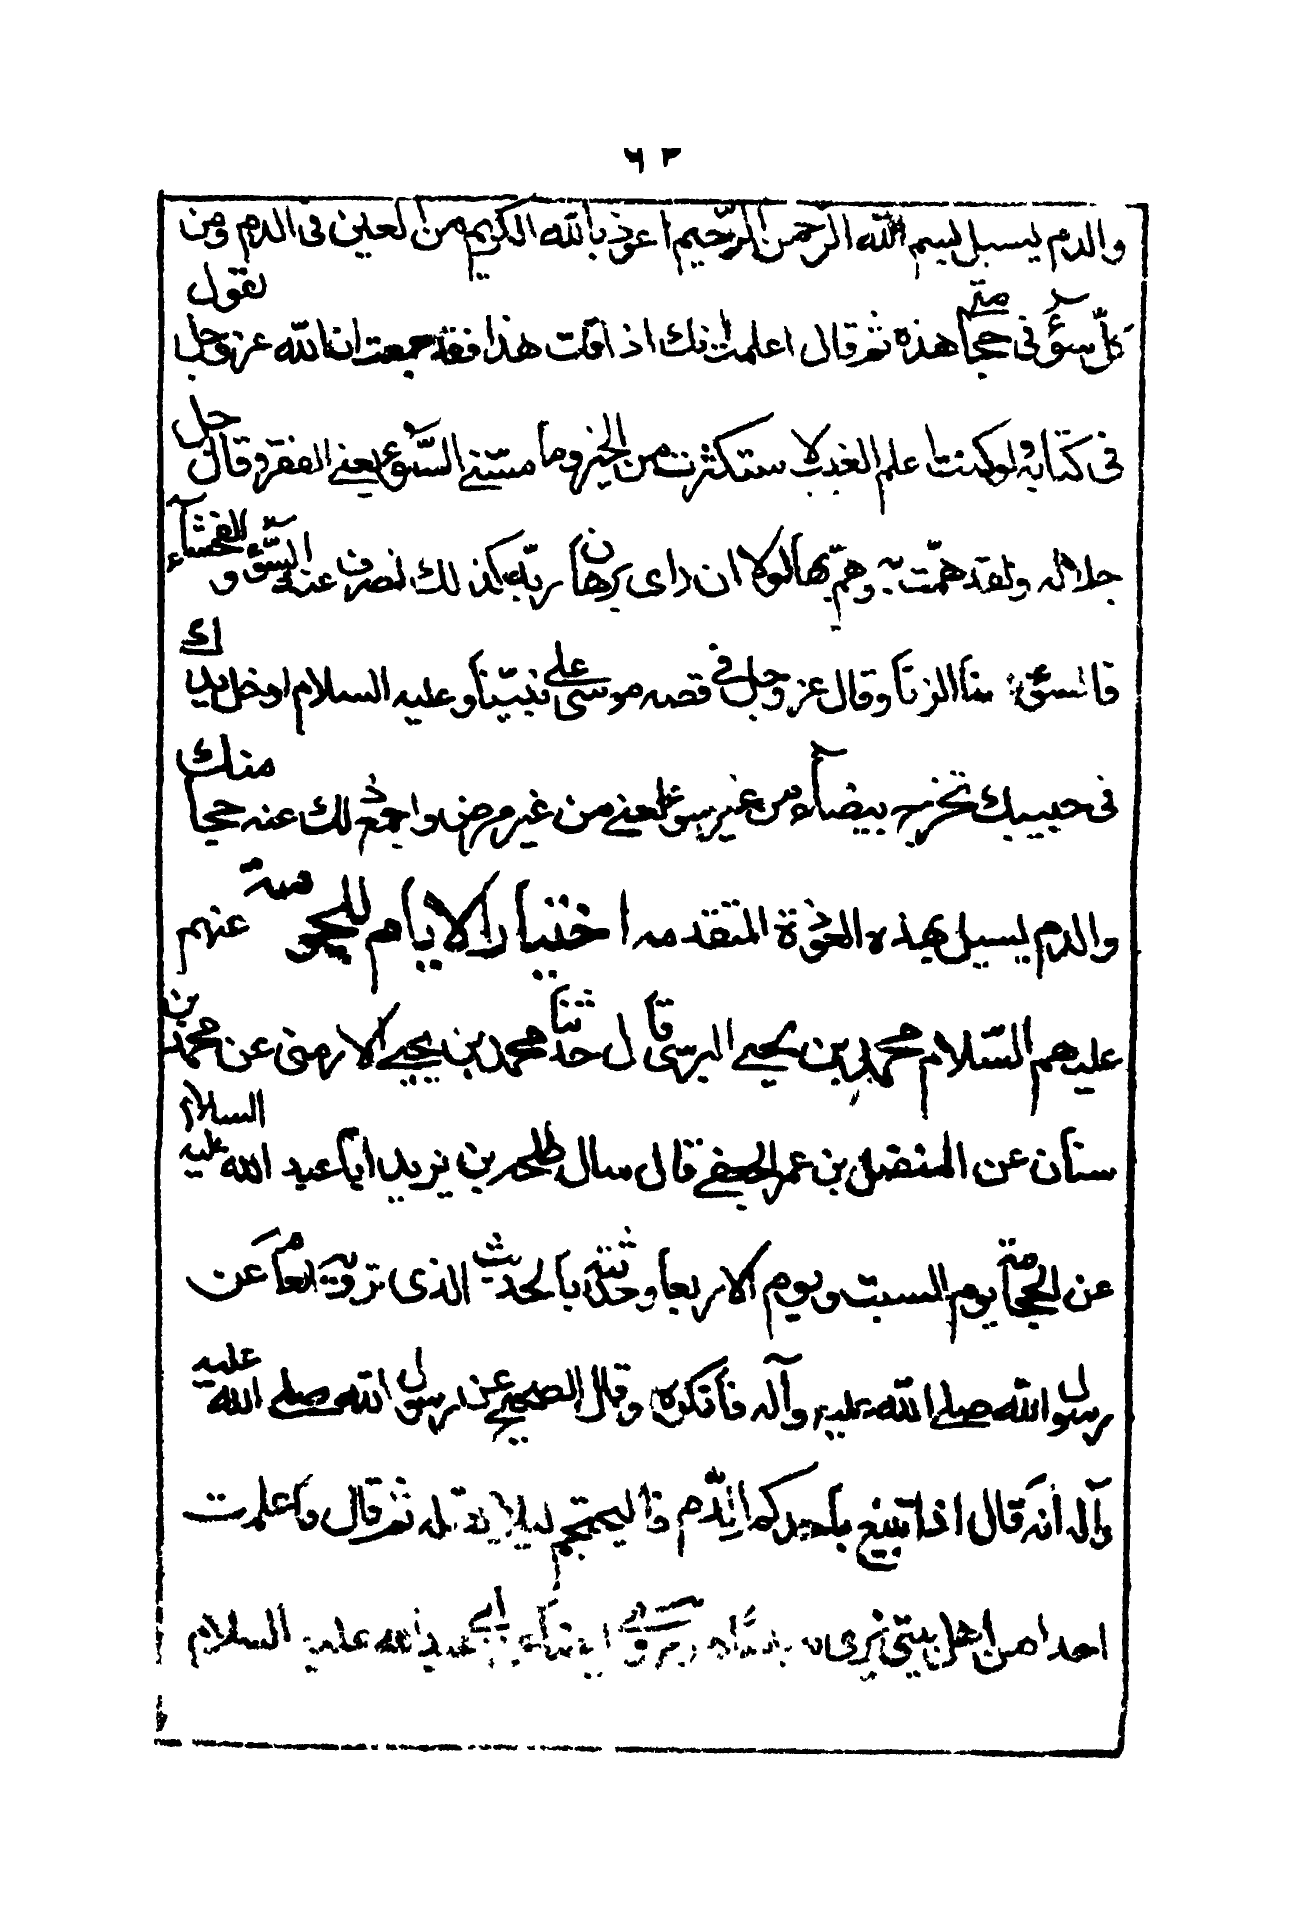 ٦٣
والدم يسيل بسم الله الرحمن الرحيم اعوذ بالله الكريم من العين فى الدم ومن
كلّ سوٓء فى حجامتى هذه ثم قال اعلمت انك اذا قلت هذا فقد جمعت ان الله عز وجل يقول
فى كتابه ولو كنت اعلم الغيب لاستكثرت من الخير وما مسّنى السّوء يعنى الفقر وقال جل
جلاله ولقد همّت به وهمّ بها لولا ان راى برهان ربّه كذلك لنصرف عنه السّوٓء و الفحشآء
فالسوٓء هنا الزنا وقال عز وجل فى قصه موسى على نبيّنا وعليه السلام ادخل يدك
فى جيبك تخرج بيضآء من غير سوء يعنى من غير مرض واجمع ذلك عند حجامتك
والدم يسيل بهذه العوذة المتقدمه اختيار الايام للحجومه عنهم
عليهم السّلام محمد بن يحيى البرسى قال حدّثنا محمد بن يحيى الارمنى عن محمد بن
سنان عن المفضل بن عمر الجعفى قال سال طلحه بن زيد ابا عبد الله عليه السلام
عن الحجامة يوم السبت ويوم الاربعا وحدثته بالحديث الذى ترويه العامه عن
رسول الله صلى الله عليه وآله فانكره وقال الصحيح عن رسول الله صلى الله عليه
وآله انه قال اذا تبيغ باحدكم الدّم فاليحتجم ليلا يقتله ثم قال ما علمت
احدا من اهل بيتى يرى به باسا وروى ايضا عن ابى عبد الله عليه السلام